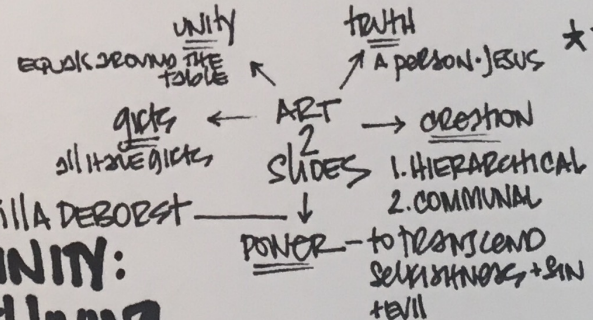 UNITY
EQUALS AROUND THE
TABLE
TRUTH
A PERSON·JESUS
*
GIFTS
All HAVE GIFTS
ART
2
SLIDES
CREATION
1. HIERARCHICAL
2. COMMUNAL
illA DEBORST
POWER - to TRANSCEND
SELFISHNESS + SIN
+ EVIl
NITY: